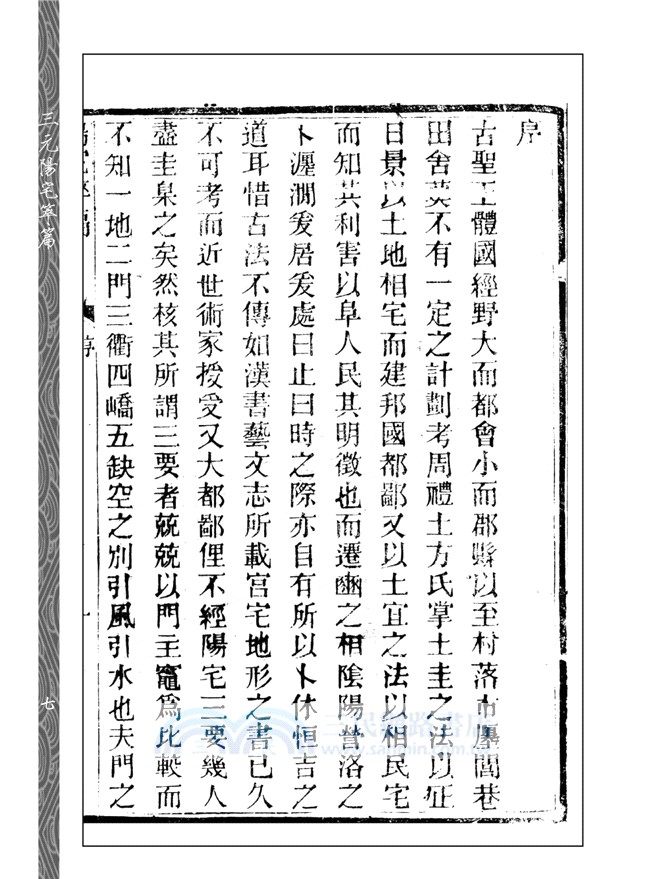 序
古聖王體國經野大而都會小而郡縣以至村落市廛閭巷
田舍莫不有一定之計劃考周禮土方氏掌土圭之法以征
日景以土地相宅而建邦國都鄙又以土宜之法以相民宅
而知其利害以阜人民其明徵也而遷豳之相陰陽營洛之
卜瀍澗爰居爰處曰止曰時之際亦自有所以卜休恒吉之
道耳惜古法不傳如漢書藝文志所載宮宅地形之書已久
不可考而近世術家授受又大都鄙俚不經陽宅三要幾人
盡圭臬之矣然核其所謂三要者兢兢以門主竈爲比較而
不知一地二門三衢四嶠五缺空之別引風引水也夫門之
序
一
三元陽宅萃篇
七
三民網路書店
www.sanmin.com.tw